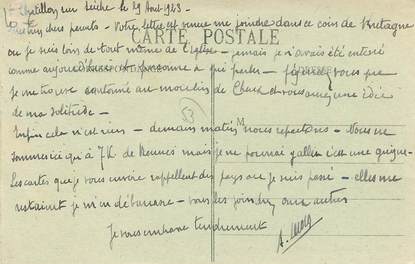 Chatillon sur Seiche le 29 Aout 1923 -
Mes biens chers parents - Votre lettre est venue me joindre dans ce coin de Bretagne
CARTE POSTALE
ou je suis loin de tout même de l'Eglise - jamais je n'avais été enterré
comme aujourd'hui et personne à qui parler - figurez vous que
je me trouve cantonné au moulin de Chaux et vous aurez une idée
de ma solitude -
53
Enfin cela n'est rien - demain matin nous repartons - Nous ne
sommes ici qu'à 7K de Rennes mais je ne pourrai y aller c'est une guigne -
Les cartes que je vous envoie rappellent des pays ou je suis passé - elles me
restaient je m'en débarrasse - vous les joindrez aux autres
Je vous embrasse tendrement